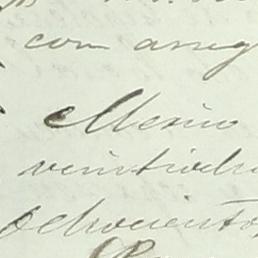 con arreg
Merino
veintiocho
ochocientos